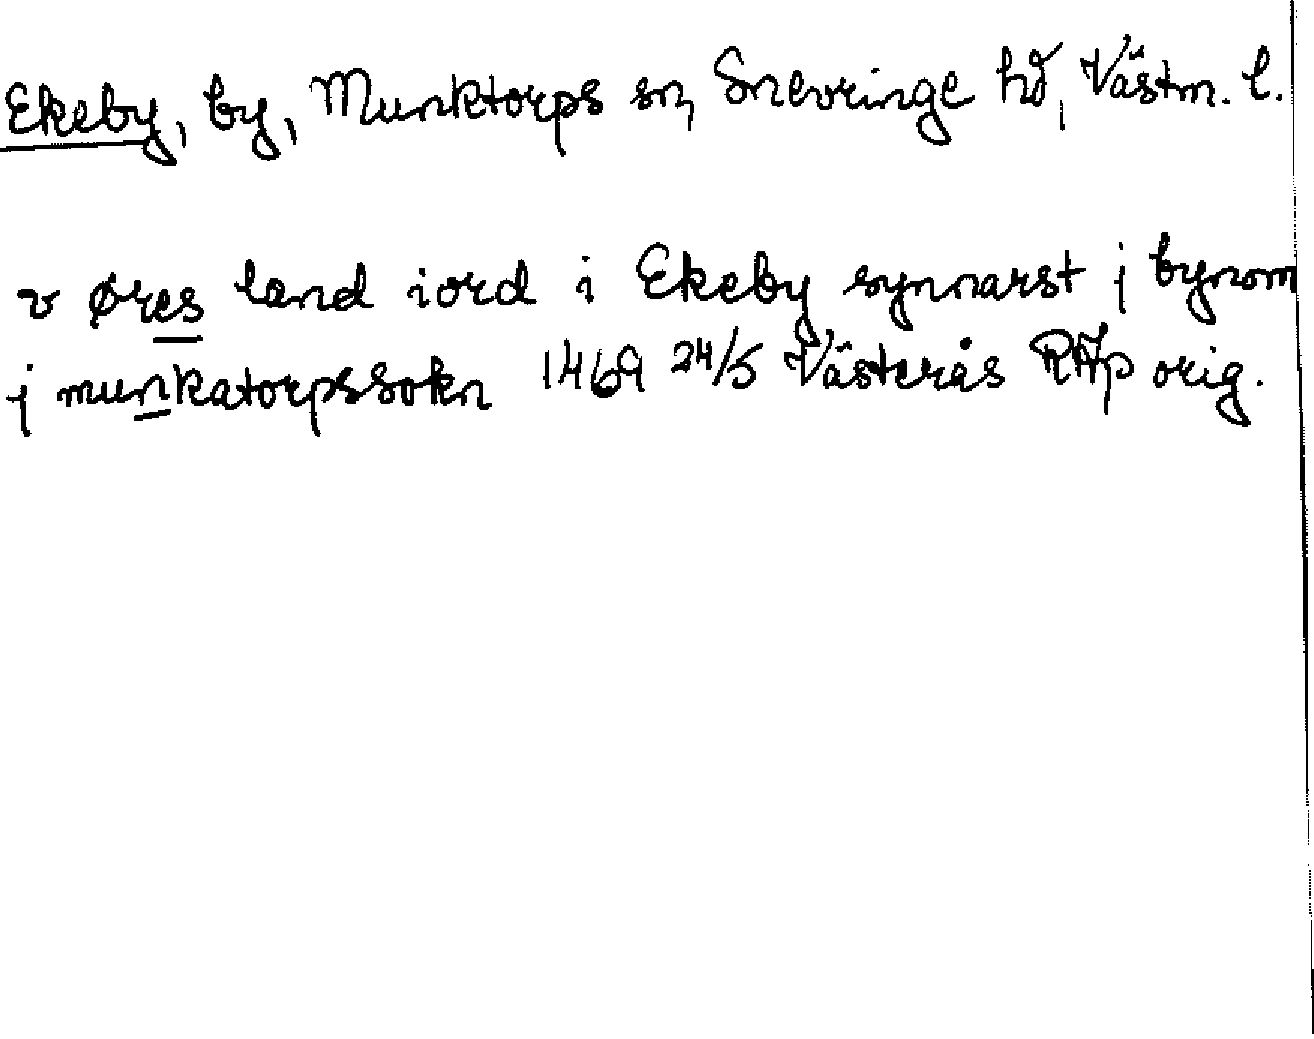 Ekeby, by, Munktorps sn, Snevringe hd, Västm. l.
v øres land iord i Ekeby synnarst j bynom
j munkatorpssokn 1469 24/5 Västerås RAp orig.